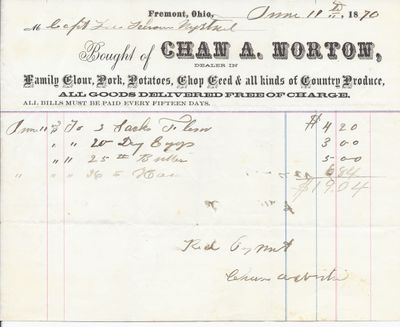 Fremont, Ohio, June 11th 1870
M Capt
Bought of CHAN A. NORTON,
DEALER IN
Family Flour, Pork, Potatoes, Chop Feed & all kinds of Country Produce,
ALL GOODS DELIVERED FREE OF CHARGE.
ALL BILLS MUST BE PAID EVERY FIFTEEN DAYS.
June 11 To 3 Sacks Flour $ 4 20
" " 20 Dz Eggs 3 00
" " 25 lb Butter 5 00
" " 36 6 84
$19.04
Recd Paymt
Chan A Norton